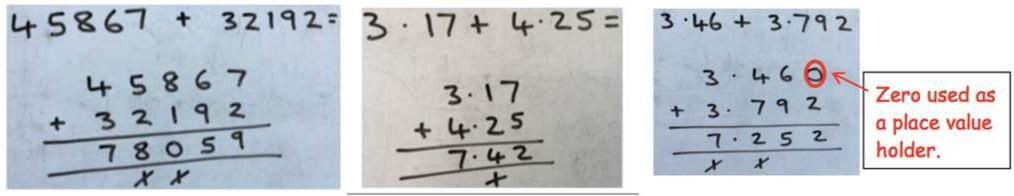 45867 + 32192=
45867
+ 32192
78059
3.17 + 4.25 =
3.17
+ 4.25
7.42
3.46 + 3.792
3.460
+ 3.792
7.252
Zero used as
a place value
holder.